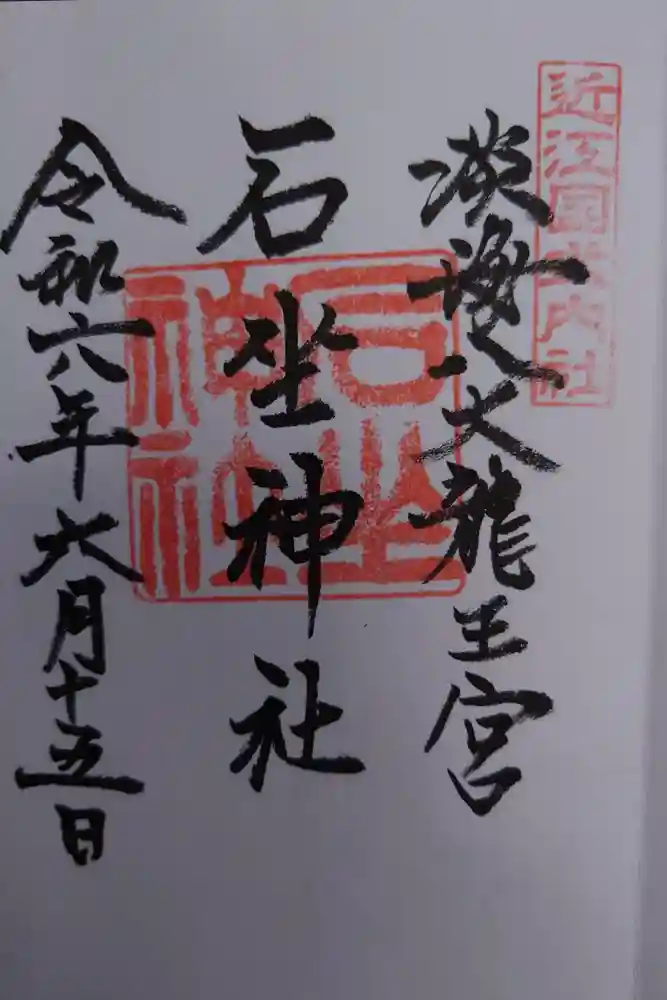 近江国式内社
淡海八大龍王宮
石坐神社
石坐
神社
令和六年六月十五日